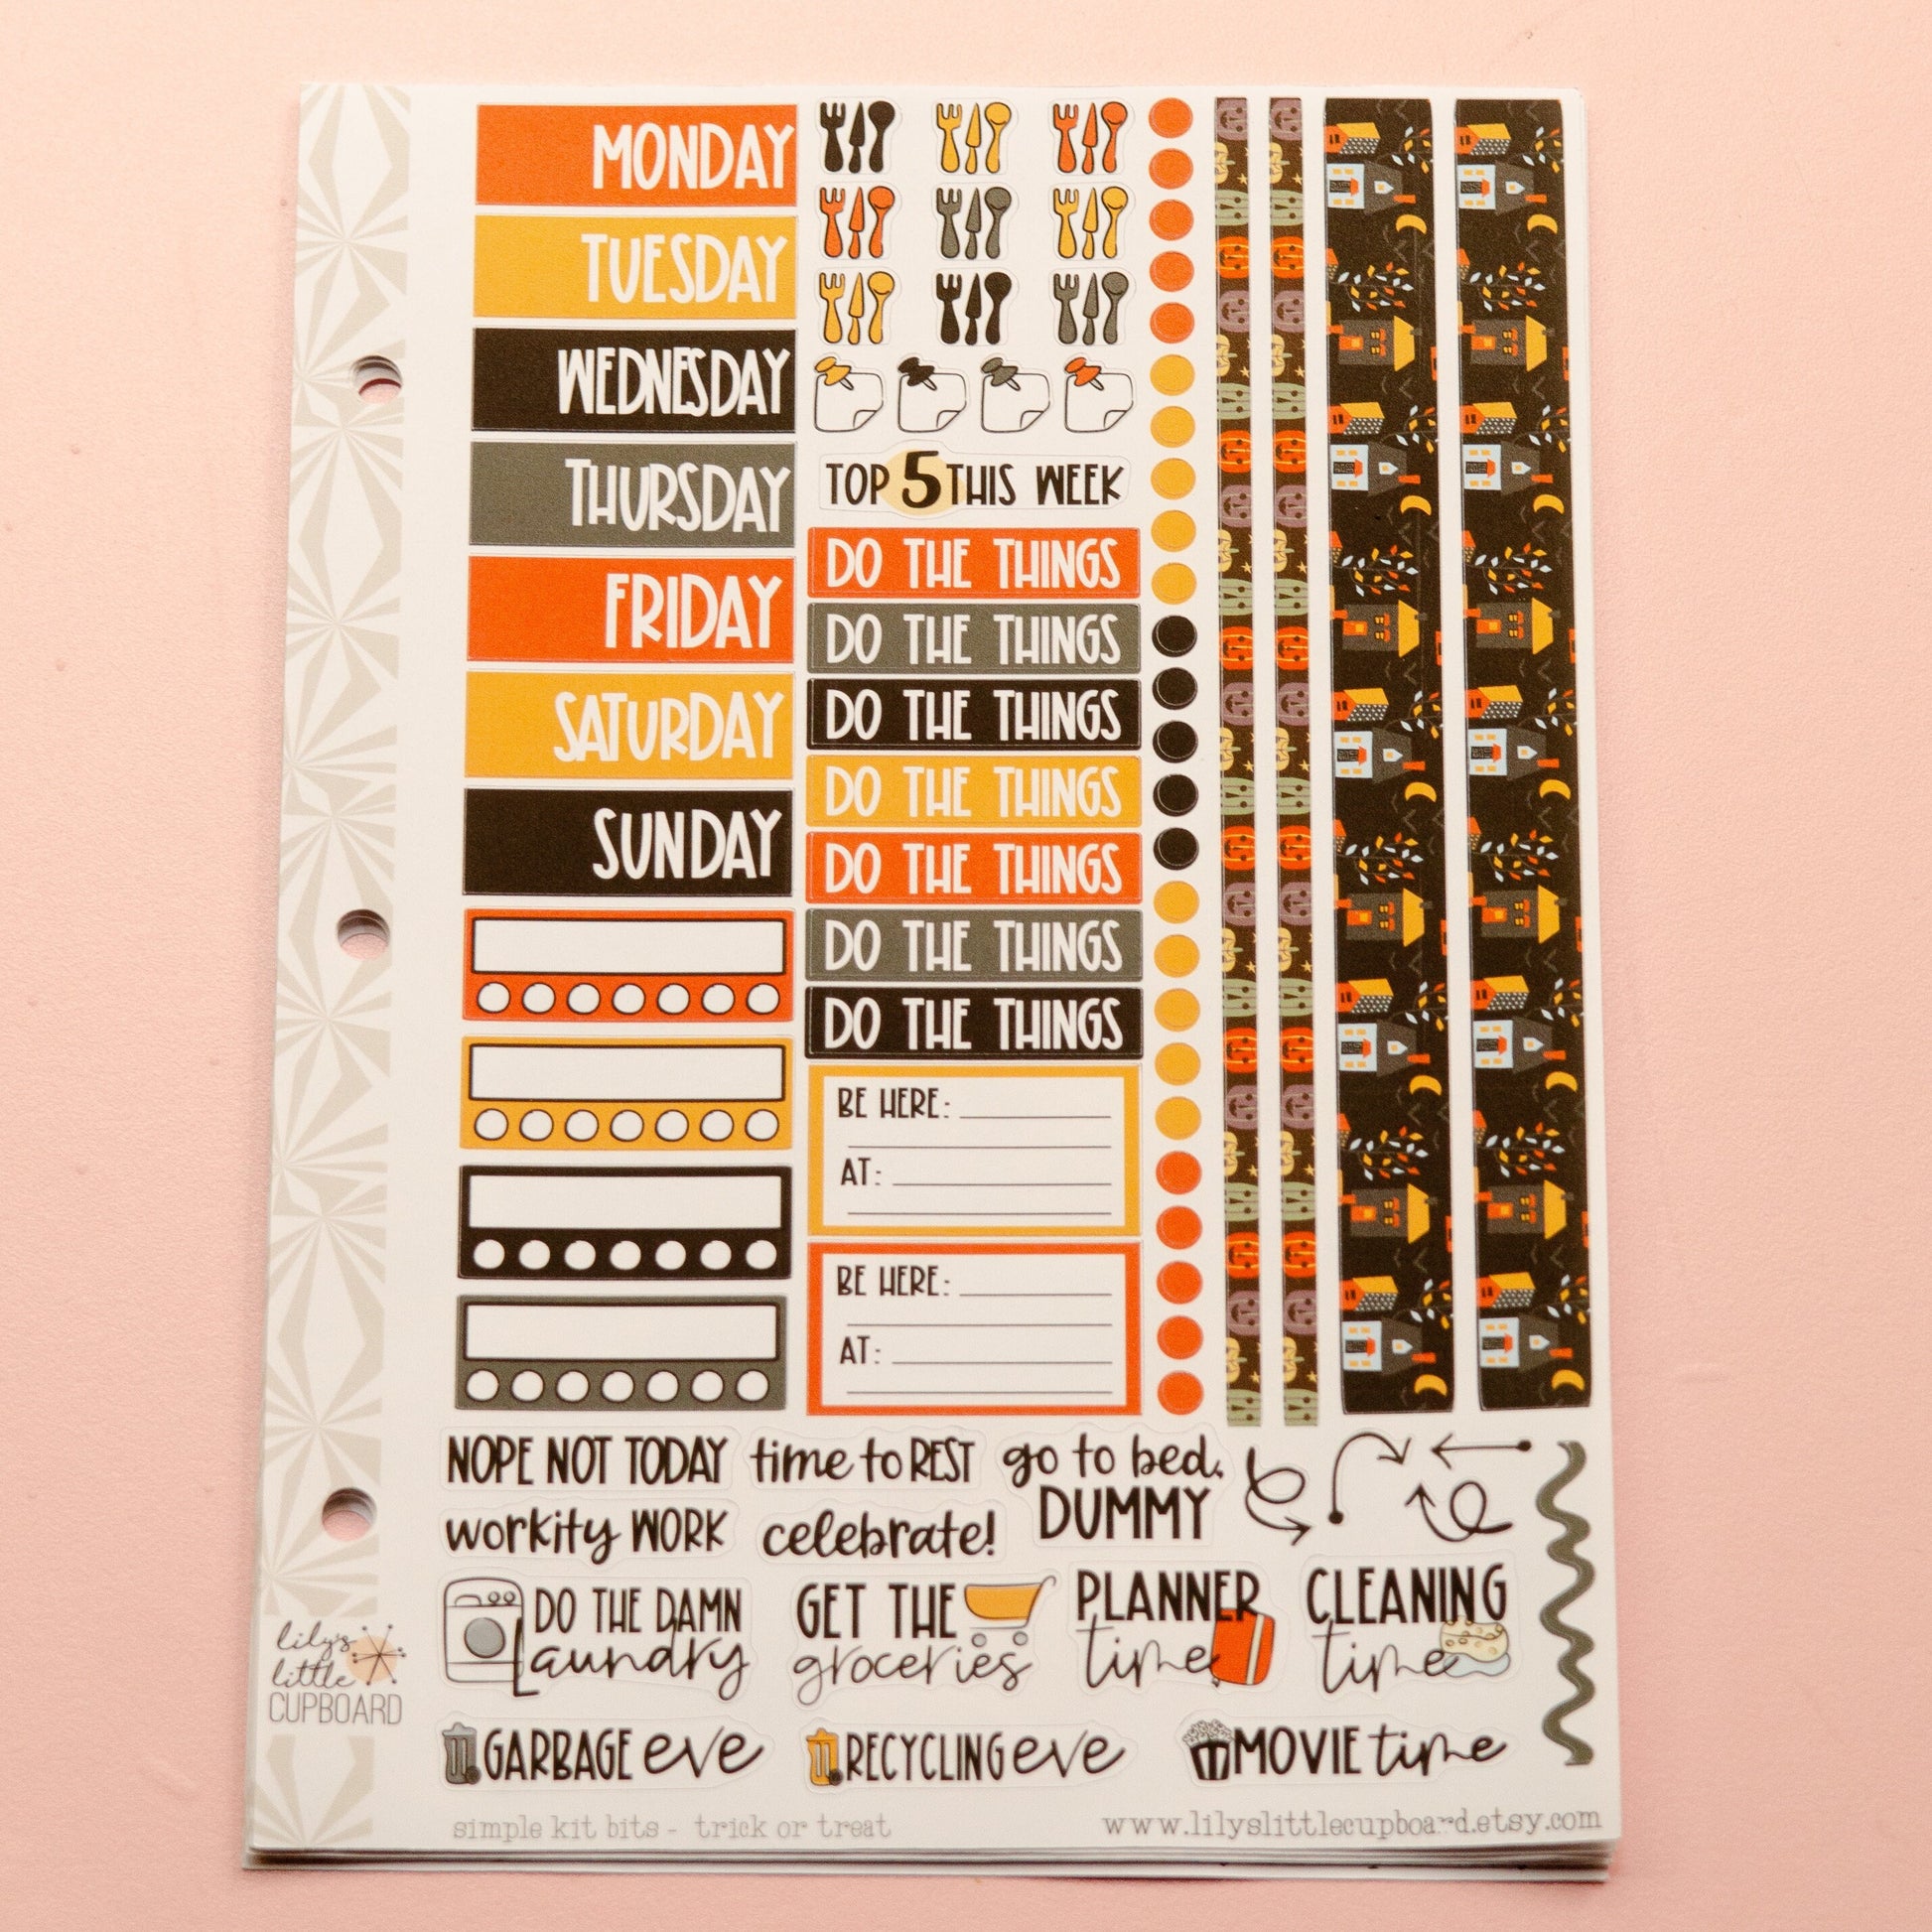 MONDAY
TUESDAY
WEDNESDAY
THURSDAY
FRIDAY
SATURDAY
SUNDAY
TOP 5 THIS WEEK
DO THE THINGS
DO THE THINGS
DO THE THINGS
DO THE THINGS
DO THE THINGS
DO THE THINGS
DO THE THINGS
BE HERE:
AT:
BE HERE:
AT:
NOPE NOT TODAY
time to REST
go to bed,
DUMMY
workity WORK
celebrate!
DO THE DAMN
Laundry
GET THE
groceries
PLANNER
time
CLEANING
time
GARBAGE eve
RECYCLING eve
MOVIE time
lily's
little
CUPBOARD
simple kit bits - trick or treat
www.lilyslittlecupboard.etsy.com